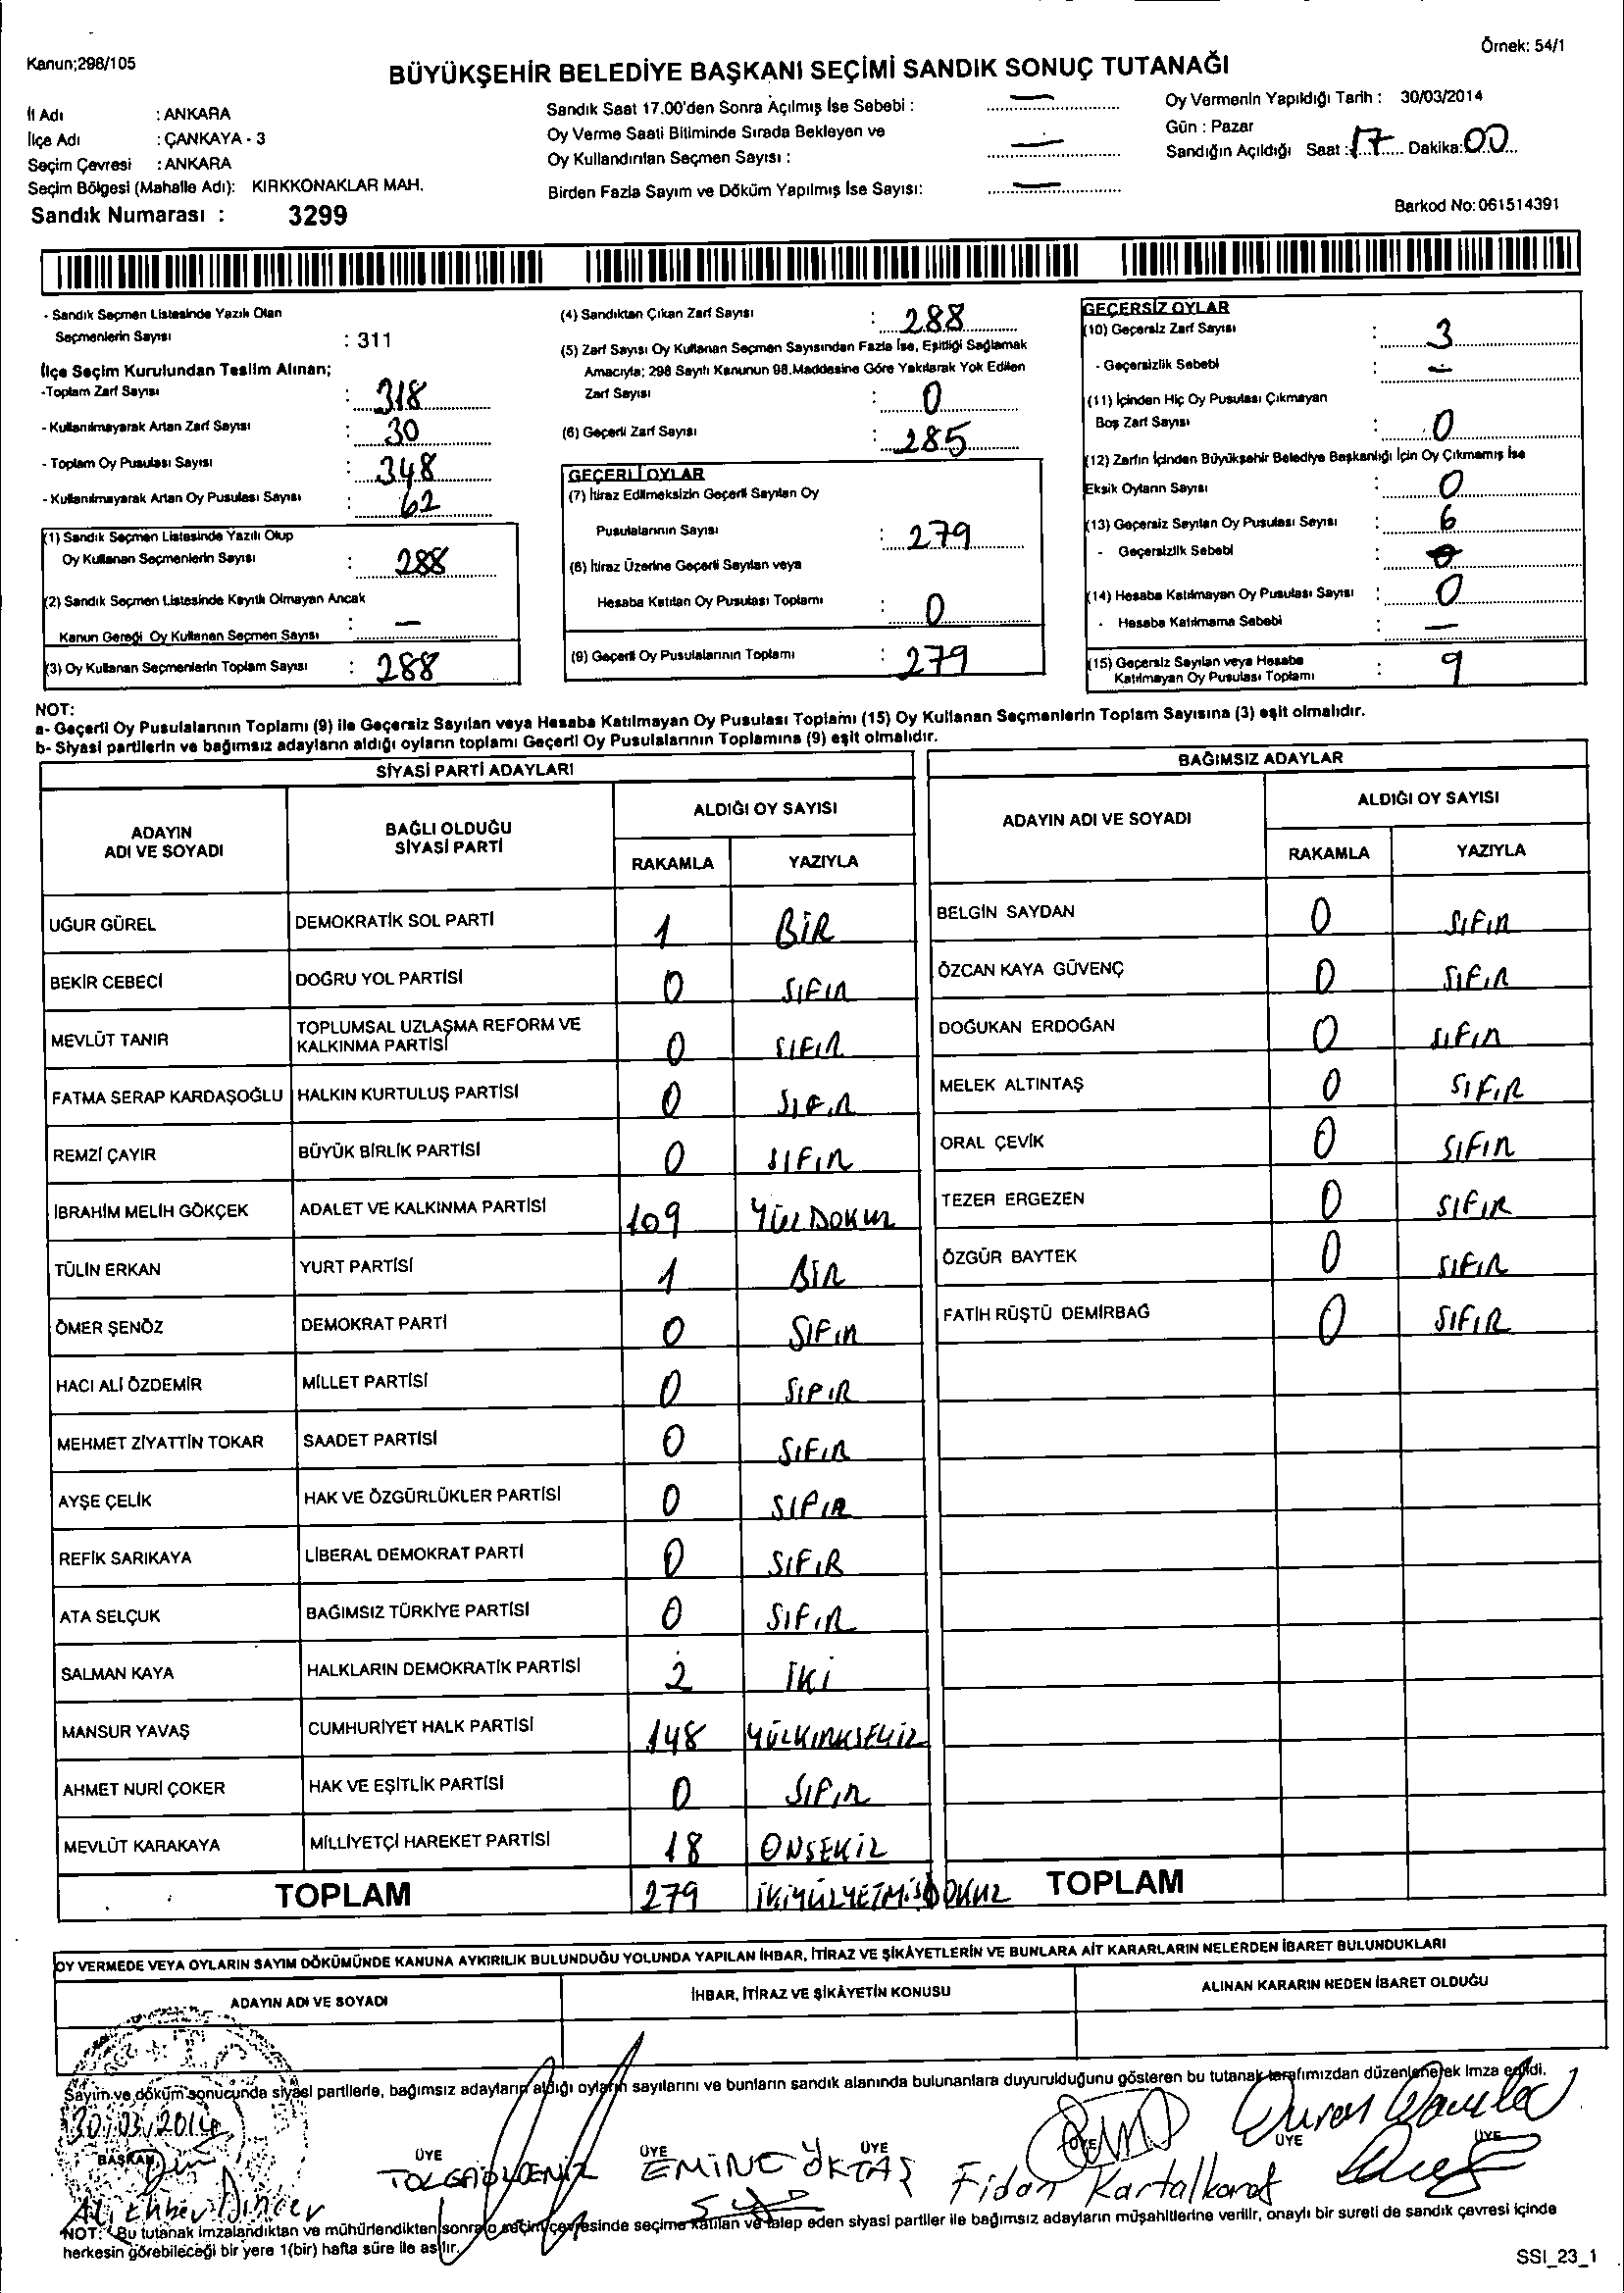 Örnek: 54/1
Kanun;298/105
BÜYÜKŞEHİR BELEDİYE BAŞKANI SEÇİMİ SANDIK SONUÇ TUTANAĞI
İl Adı : ANKARA
İlçe Adı : ÇANKAYA - 3
Seçim Çevresi : ANKARA
Seçim Bölgesi (Mahalle Adı): KIRKKONAKLAR MAH.
Sandık Numarası : 3299
Sandık Saat 17.00'den Sonra Açılmış İse Sebebi : —
Oy Verme Saati Bitiminde Sırada Bekleyen ve
Oy Kullandırılan Seçmen Sayısı : —
Birden Fazla Sayım ve Döküm Yapılmış İse Sayısı: —
Oy Vermenin Yapıldığı Tarih : 30/03/2014
Gün : Pazar
Sandığın Açıldığı Saat : 17 Dakika: 00
Barkod No: 061514391
- Sandık Seçmen Listesinde Yazılı Olan
Seçmenlerin Sayısı : 311
İlçe Seçim Kurulundan Teslim Alınan;
-Toplam Zarf Sayısı : 318
- Kullanılmayarak Artan Zarf Sayısı : 30
- Toplam Oy Pusulası Sayısı : 348
- Kullanılmayarak Artan Oy Pusulası Sayısı : 62
(1) Sandık Seçmen Listesinde Yazılı Olup
Oy Kullanan Seçmenlerin Sayısı : 288
(2) Sandık Seçmen Listesinde Kayıtlı Olmayan Ancak
Kanun Gereği Oy Kullanan Seçmen Sayısı : —
(3) Oy Kullanan Seçmenlerin Toplam Sayısı : 288
(4) Sandıktan Çıkan Zarf Sayısı : 288
(5) Zarf Sayısı Oy Kullanan Seçmen Sayısından Fazla İse, Eşitliği Sağlamak
Amacıyla; 298 Sayılı Kanunun 98.Maddesine Göre Yakılarak Yok Edilen
Zarf Sayısı : 0
(6) Geçerli Zarf Sayısı : 285
GEÇERLİ OYLAR
(7) İtiraz Edilmeksizin Geçerli Sayılan Oy
Pusulalarının Sayısı : 279
(8) İtiraz Üzerine Geçerli Sayılan veya
Hesaba Katılan Oy Pusulası Toplamı : 0
(9) Geçerli Oy Pusulalarının Toplamı : 279
GEÇERSİZ OYLAR
(10) Geçersiz Zarf Sayısı : 3
- Geçersizlik Sebebi : —
(11) İçinden Hiç Oy Pusulası Çıkmayan
Boş Zarf Sayısı : 0
(12) Zarfın İçinden Büyükşehir Belediye Başkanlığı İçin Oy Çıkmamış İse
Eksik Oyların Sayısı : 0
(13) Geçersiz Sayılan Oy Pusulası Sayısı : 6
- Geçersizlik Sebebi :
(14) Hesaba Katılmayan Oy Pusulası Sayısı : 0
- Hesaba Katılmama Sebebi : —
(15) Geçersiz Sayılan veya Hesaba
Katılmayan Oy Pusulası Toplamı : 9
NOT:
a- Geçerli Oy Pusulalarının Toplamı (9) ile Geçersiz Sayılan veya Hesaba Katılmayan Oy Pusulası Toplamı (15) Oy Kullanan Seçmenlerin Toplam Sayısına (3) eşit olmalıdır.
b- Siyasi partilerin ve bağımsız adayların aldığı oyların toplamı Geçerli Oy Pusulalarının Toplamına (9) eşit olmalıdır.
SİYASİ PARTİ ADAYLARI
ADAYIN ADI VE SOYADI BAĞLI OLDUĞU SİYASİ PARTİ ALDIĞI OY SAYISI
RAKAMLA YAZIYLA
UĞUR GÜREL DEMOKRATİK SOL PARTİ 1 BİR
BEKİR CEBECİ DOĞRU YOL PARTİSİ 0 SIFIR
MEVLÜT TANIR TOPLUMSAL UZLAŞMA REFORM VE KALKINMA PARTİSİ 0 SIFIR
FATMA SERAP KARDAŞOĞLU HALKIN KURTULUŞ PARTİSİ 0 SIFIR
REMZİ ÇAYIR BÜYÜK BİRLİK PARTİSİ 0 SIFIR
İBRAHİM MELİH GÖKÇEK ADALET VE KALKINMA PARTİSİ 109 YÜZ DOKUZ
TÜLİN ERKAN YURT PARTİSİ 1 BİR
ÖMER ŞENÖZ DEMOKRAT PARTİ 0 SIFIR
HACI ALİ ÖZDEMİR MİLLET PARTİSİ 0 SIFIR
MEHMET ZİYATTİN TOKAR SAADET PARTİSİ 0 SIFIR
AYŞE ÇELİK HAK VE ÖZGÜRLÜKLER PARTİSİ 0 SIFIR
REFİK SARIKAYA LİBERAL DEMOKRAT PARTİ 0 SIFIR
ATA SELÇUK BAĞIMSIZ TÜRKİYE PARTİSİ 0 SIFIR
SALMAN KAYA HALKLARIN DEMOKRATİK PARTİSİ 2 İKİ
MANSUR YAVAŞ CUMHURİYET HALK PARTİSİ 148 YÜZKIRKSEKİZ
AHMET NURİ ÇOKER HAK VE EŞİTLİK PARTİSİ 0 SIFIR
MEVLÜT KARAKAYA MİLLİYETÇİ HAREKET PARTİSİ 18 ONSEKİZ
TOPLAM 279 İKİYÜZYETMİŞDOKUZ
BAĞIMSIZ ADAYLAR
ADAYIN ADI VE SOYADI ALDIĞI OY SAYISI
RAKAMLA YAZIYLA
BELGİN SAYDAN 0 SIFIR
ÖZCAN KAYA GÜVENÇ 0 SIFIR
DOĞUKAN ERDOĞAN 0 SIFIR
MELEK ALTINTAŞ 0 SIFIR
ORAL ÇEVİK 0 SIFIR
TEZER ERGEZEN 0 SIFIR
ÖZGÜR BAYTEK 0 SIFIR
FATİH RÜŞTÜ DEMİRBAĞ 0 SIFIR
TOPLAM
OY VERMEDE VEYA OYLARIN SAYIM DÖKÜMÜNDE KANUNA AYKIRILIK BULUNDUĞU YOLUNDA YAPILAN İHBAR, İTİRAZ VE ŞİKÂYETLERİN VE BUNLARA AİT KARARLARIN NELERDEN İBARET BULUNDUKLARI
ADAYIN ADI VE SOYADI İHBAR, İTİRAZ VE ŞİKÂYETİN KONUSU ALINAN KARARIN NEDEN İBARET OLDUĞU
Sayım ve döküm sonucunda siyasi partilerle, bağımsız adayların aldığı oyların sayılarını ve bunların sandık alanında bulunanlara duyurulduğunu gösteren bu tutanak tarafımızdan düzenlenerek imza edildi.
30/03/2014
BAŞKAN ÜYE ÜYE ÜYE ÜYE ÜYE ÜYE
EMİNE ÖKTAŞ Fidan
NOT: Bu tutanak imzalandıktan ve mühürlendikten sonra o seçim çevresinde seçime katılan ve talep eden siyasi partiler ile bağımsız adayların müşahitlerine verilir, onaylı bir sureti de sandık çevresi içinde
herkesin görebileceği bir yere 1(bir) hafta süre ile asılır.
SSI_23_1